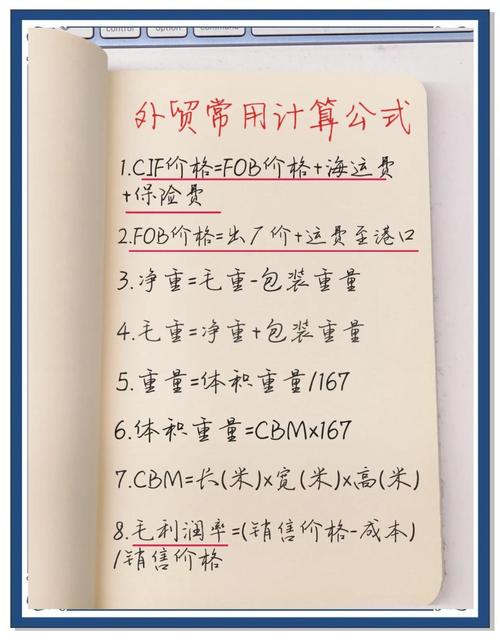 control
option
command
外贸常用计算公式
1.CIF价格=FOB价格+海运费
+保险费
2.FOB价格=出厂价+运费至港口
3.净重=毛重-包装重量
4.毛重=净重+包装重量
5.重量=体积重量/167
6.体积重量=CBMx167
7.CBM=长(米)x宽(米)x高(米)
8.毛利润率=(销售价格-成本)
/销售价格